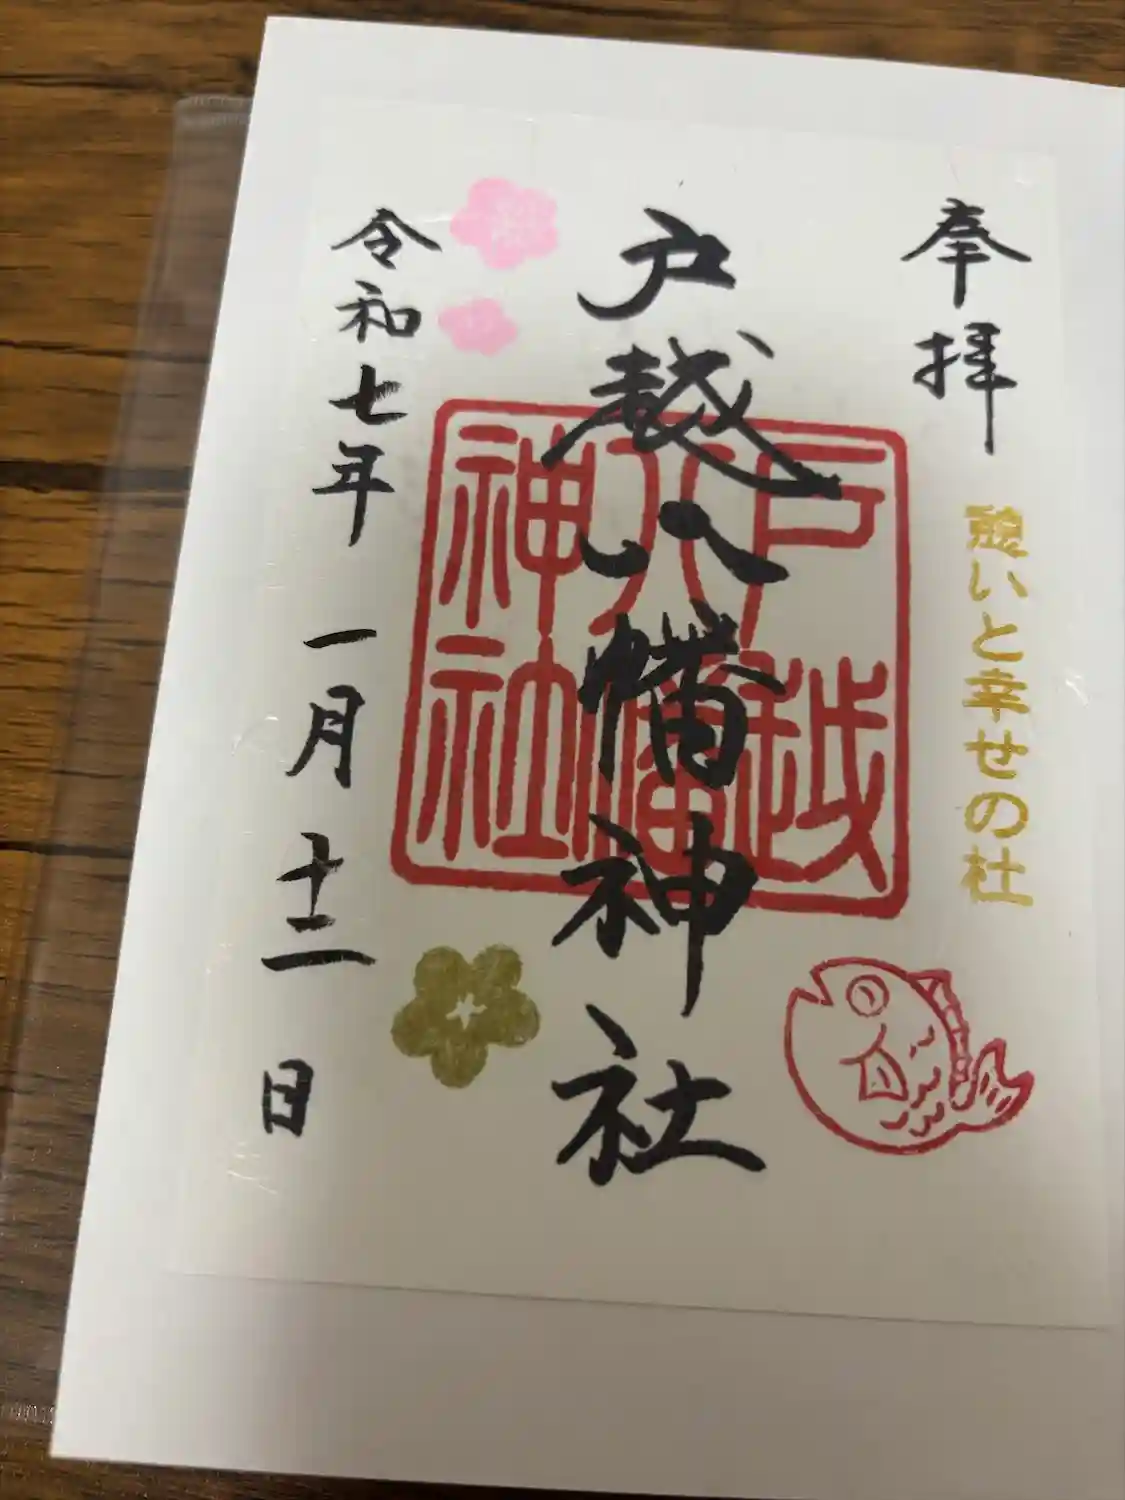 奉拝
憩いと幸せの杜
戸越八幡神社
戸越
八幡
神社
令和七年一月十二日